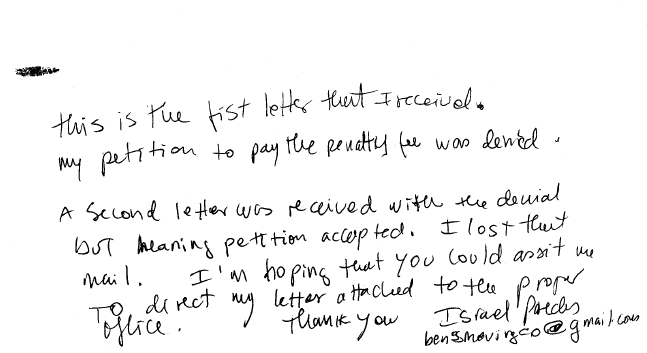 this is the fist letter that I received.
my petition to pay the penalty fee was denied.
A second letter was received with the denial
but hearing petition accepted. I lost that
mail. I'm hoping that you could assit me
TO direct my letter attached to the proper
office. Thank you Israel
bensmovingco@gmail.com